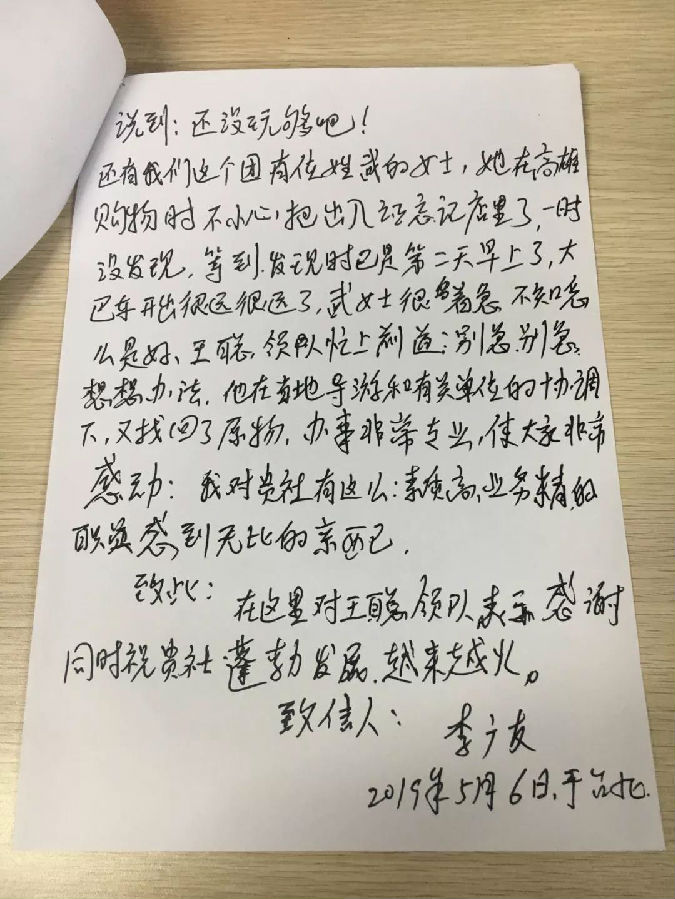 说到：还没玩够吧！
还有我们这个团有位姓武的女士，她在高雄
购物时不小心，把出入证忘记店里了，一时
没发现，等到发现时已是第二天早上了，大
巴车开出很远很远了，武女士很着急 不知怎
么是好、王聪，领队忙上前道：别急别急，
想想办法，他在当地导游和有关单位的协调
下，又找回了原物，办事非常专业，使大家非常
感动：我对贵社有这么：素质高，业务精的
职员感到无比的
致此：在这里对王聪领队表示感谢
同时祝贵社蓬勃发展，越来越火。
致信人：李广友
2019年5月6日，于台北.